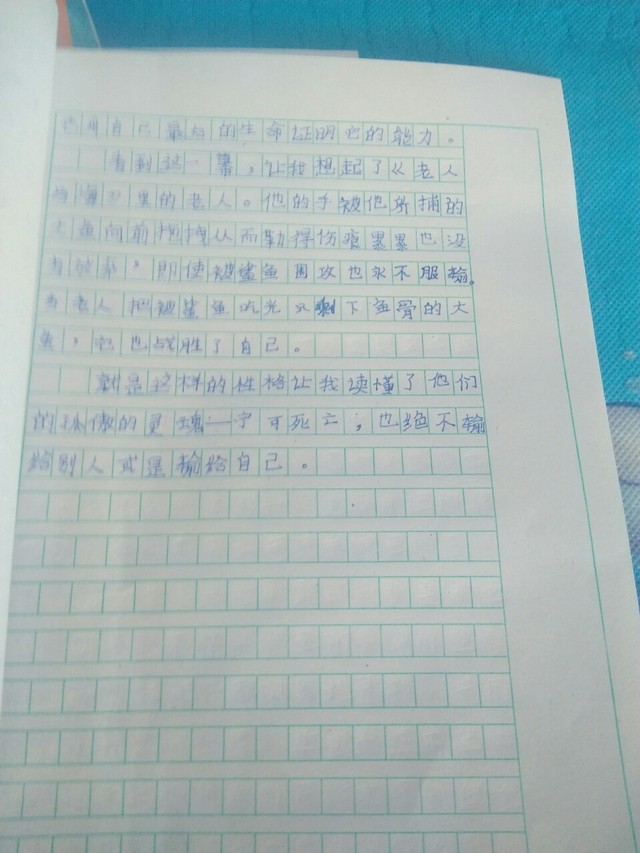 用自己最后的生命证明它的能力。
看到这一幕,让我想起了《老人
与海》里的老人。他的手被他所捕的
大鱼向前拽 从而勒得伤痕累累也没
有放弃,即使被鲨鱼围攻也永不服输。
当老人把被鲨鱼吃光只剩下鱼骨的大
鱼, 也战胜了自己。
就是这样的性格让我读懂了他们
的孤傲的灵魂——宁可死亡,也绝不输
给别人或是输给自己。